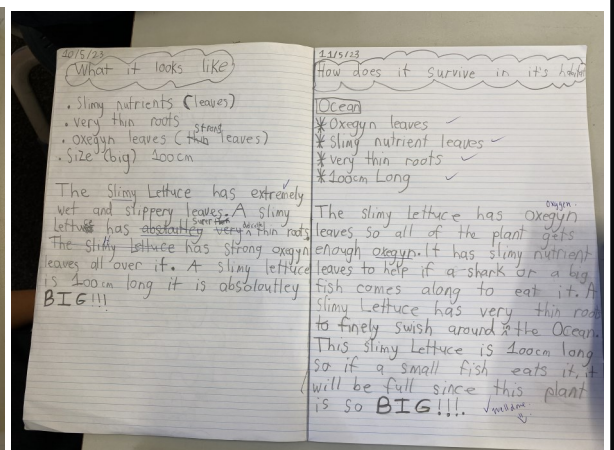 10/5/23
What it looks like
• Slimy nutrients (leaves)
• very thin roots
• oxegyn leaves (thin strong leaves)
• Size (big) 100cm
The Slimy Lettuce has extremely
wet and slippery leaves. A slimy
Lettuce has absloutley very thin roots
The slimy lettuce has strong oxegyn
leaves all over it. A slimy lettuce
is 100cm long it is absoloutley
BIG!!!
11/5/23
How does it survive in it's
Ocean
* Oxegyn leaves ✓
* Slimy nutrient leaves ✓
* very thin roots ✓
* 100cm Long ✓
oxygen.
The slimy Lettuce has oxegyn
leaves so all of the plant gets
enough oxegyn. It has slimy nutrient
leaves to help if a shark or a big
fish comes along to eat it. A
slimy Lettuce has very thin
to finely swish around the Ocean.
This slimy Lettuce is 100cm long
so if a small fish eats it, it
will be full since this plant
is so BIG!!!. ✓ well done